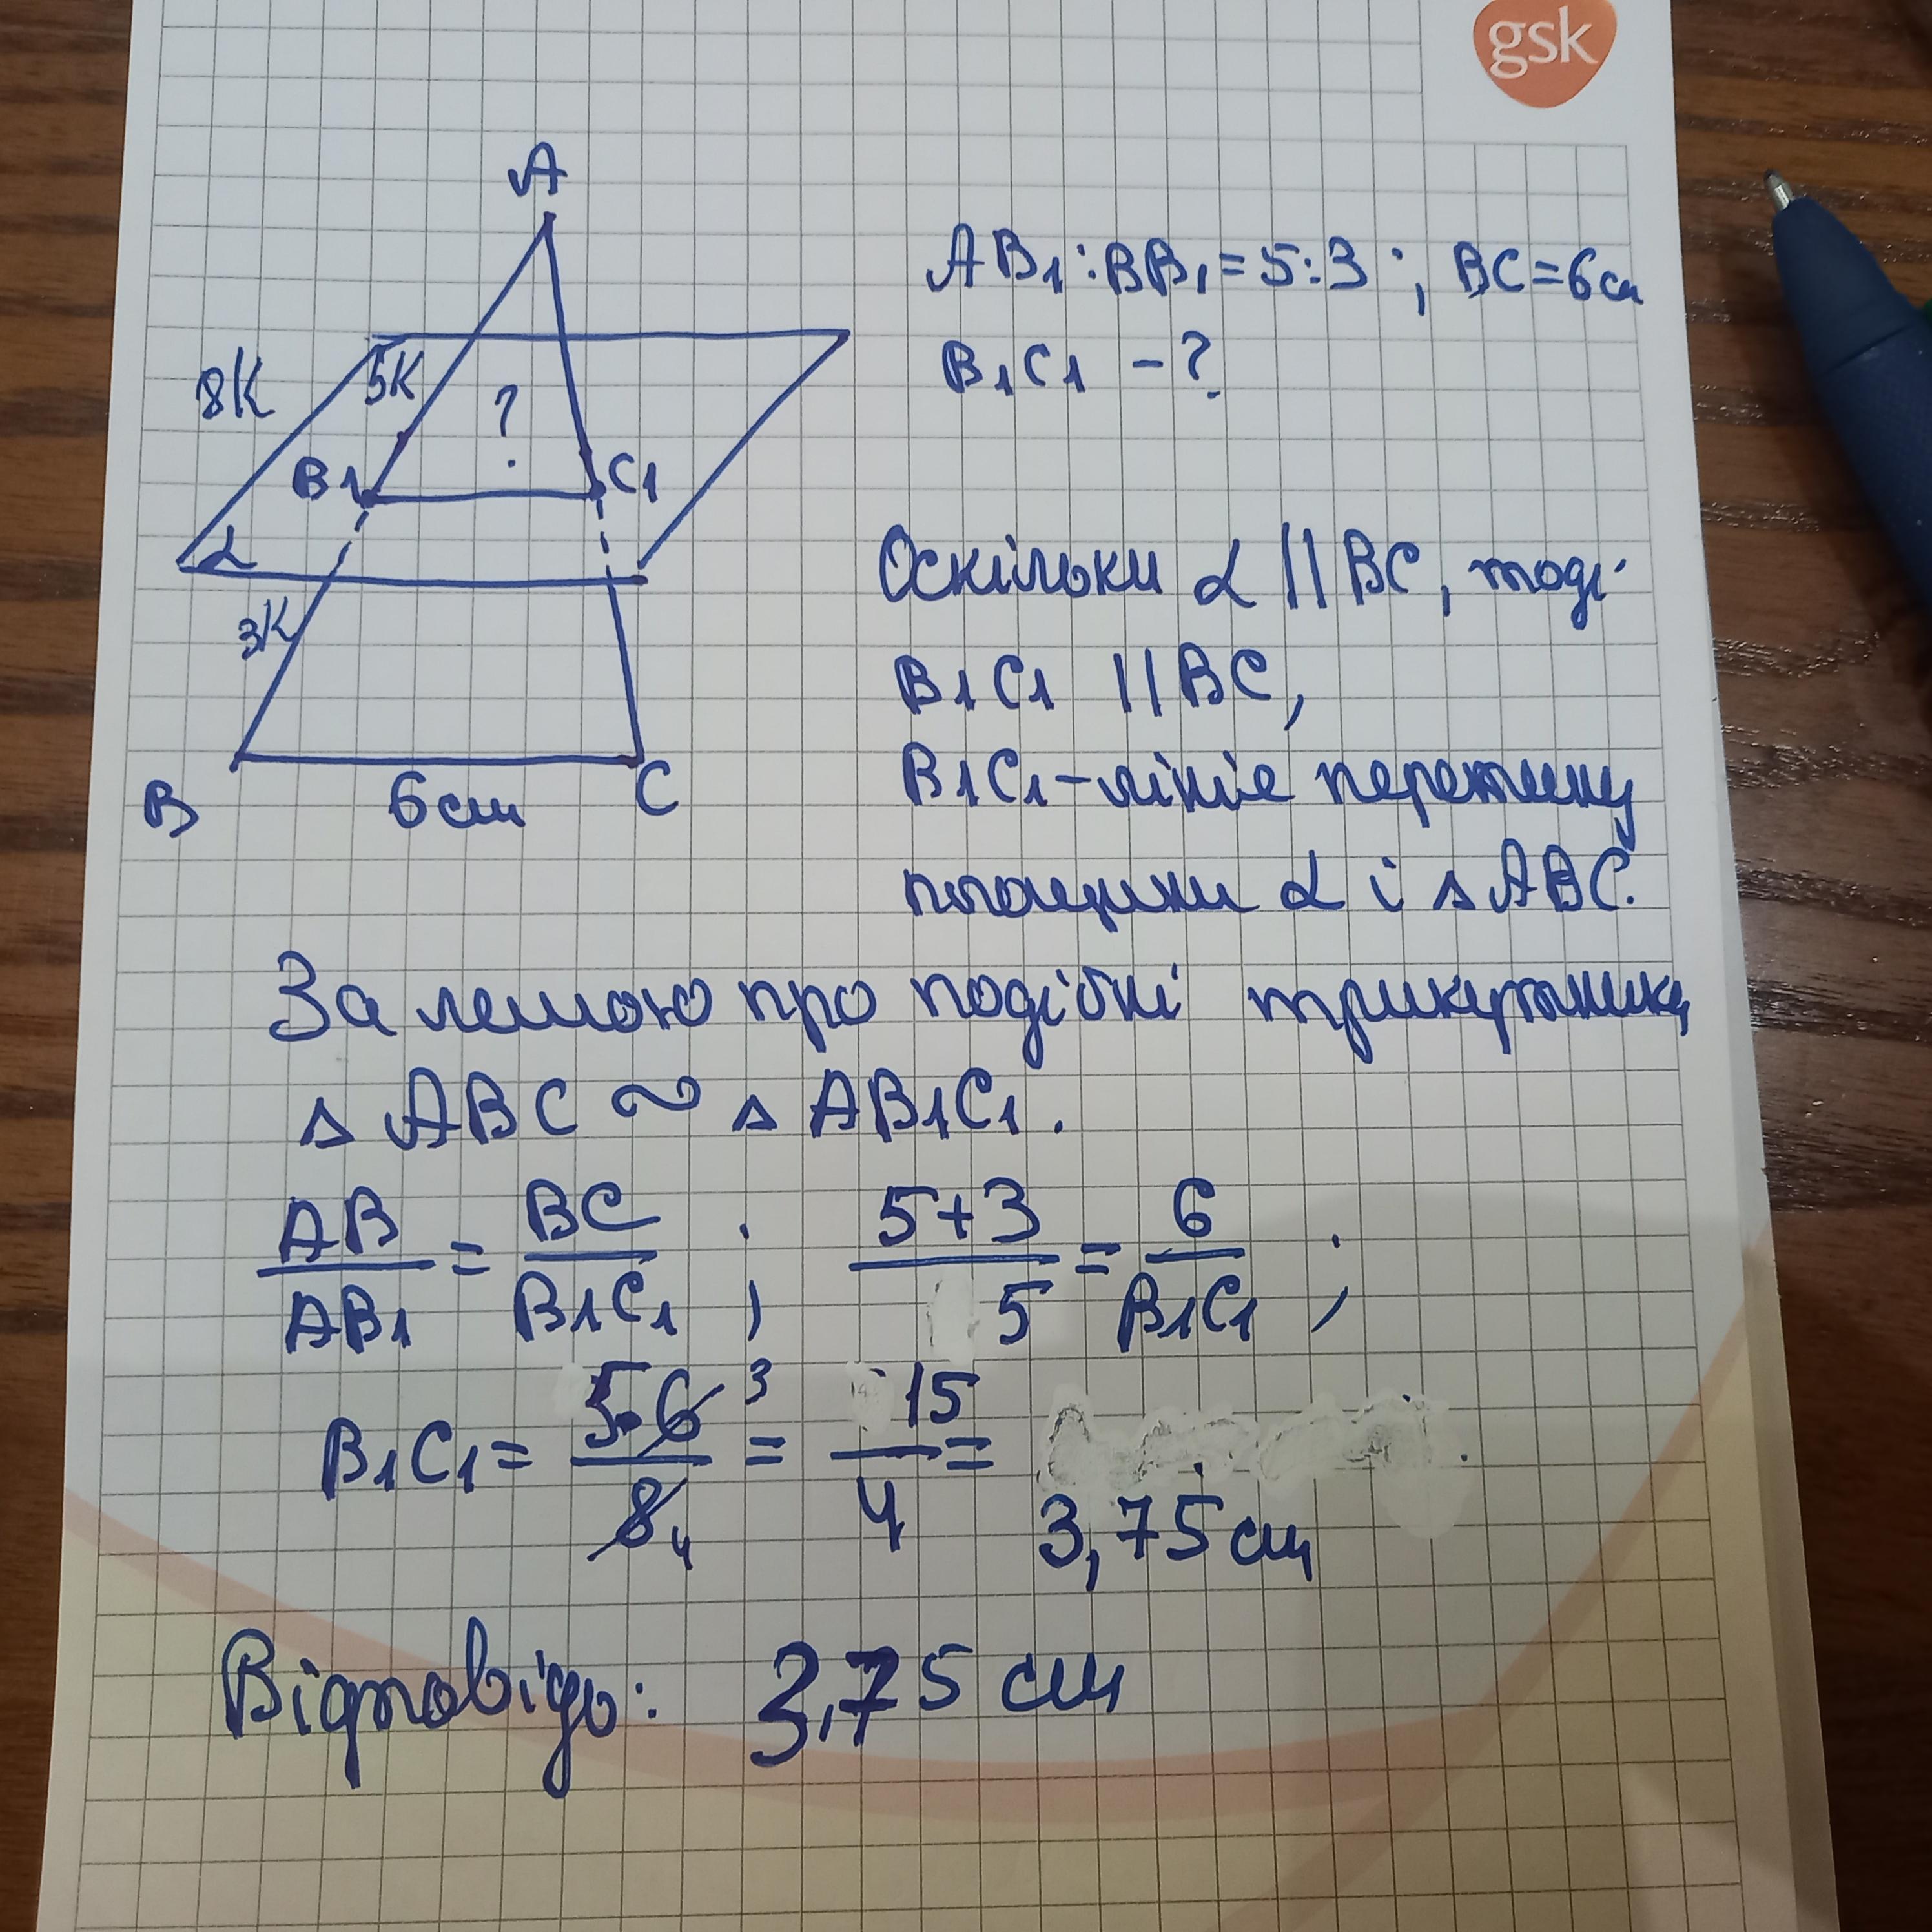 gsk
A
AB₁:BB₁=5:3 ; BC=6см
B₁C₁ – ?
8K
5K
?
B₁
C₁
α
3K
B
6см
C
Оскільки α || BC, тоді
B₁C₁ || BC,
B₁C₁ – лінія перетину
площини α і △ABC.
За лемою про подібні трикутники
△ ABC ~ △ AB₁C₁.
AB/AB₁ = BC/B₁C₁ ; (5+3)/5 = 6/B₁C₁ ;
B₁C₁ = 5·6/8 = 15/4 = .
3 4
3,75 см
Відповідь: 3,75 см